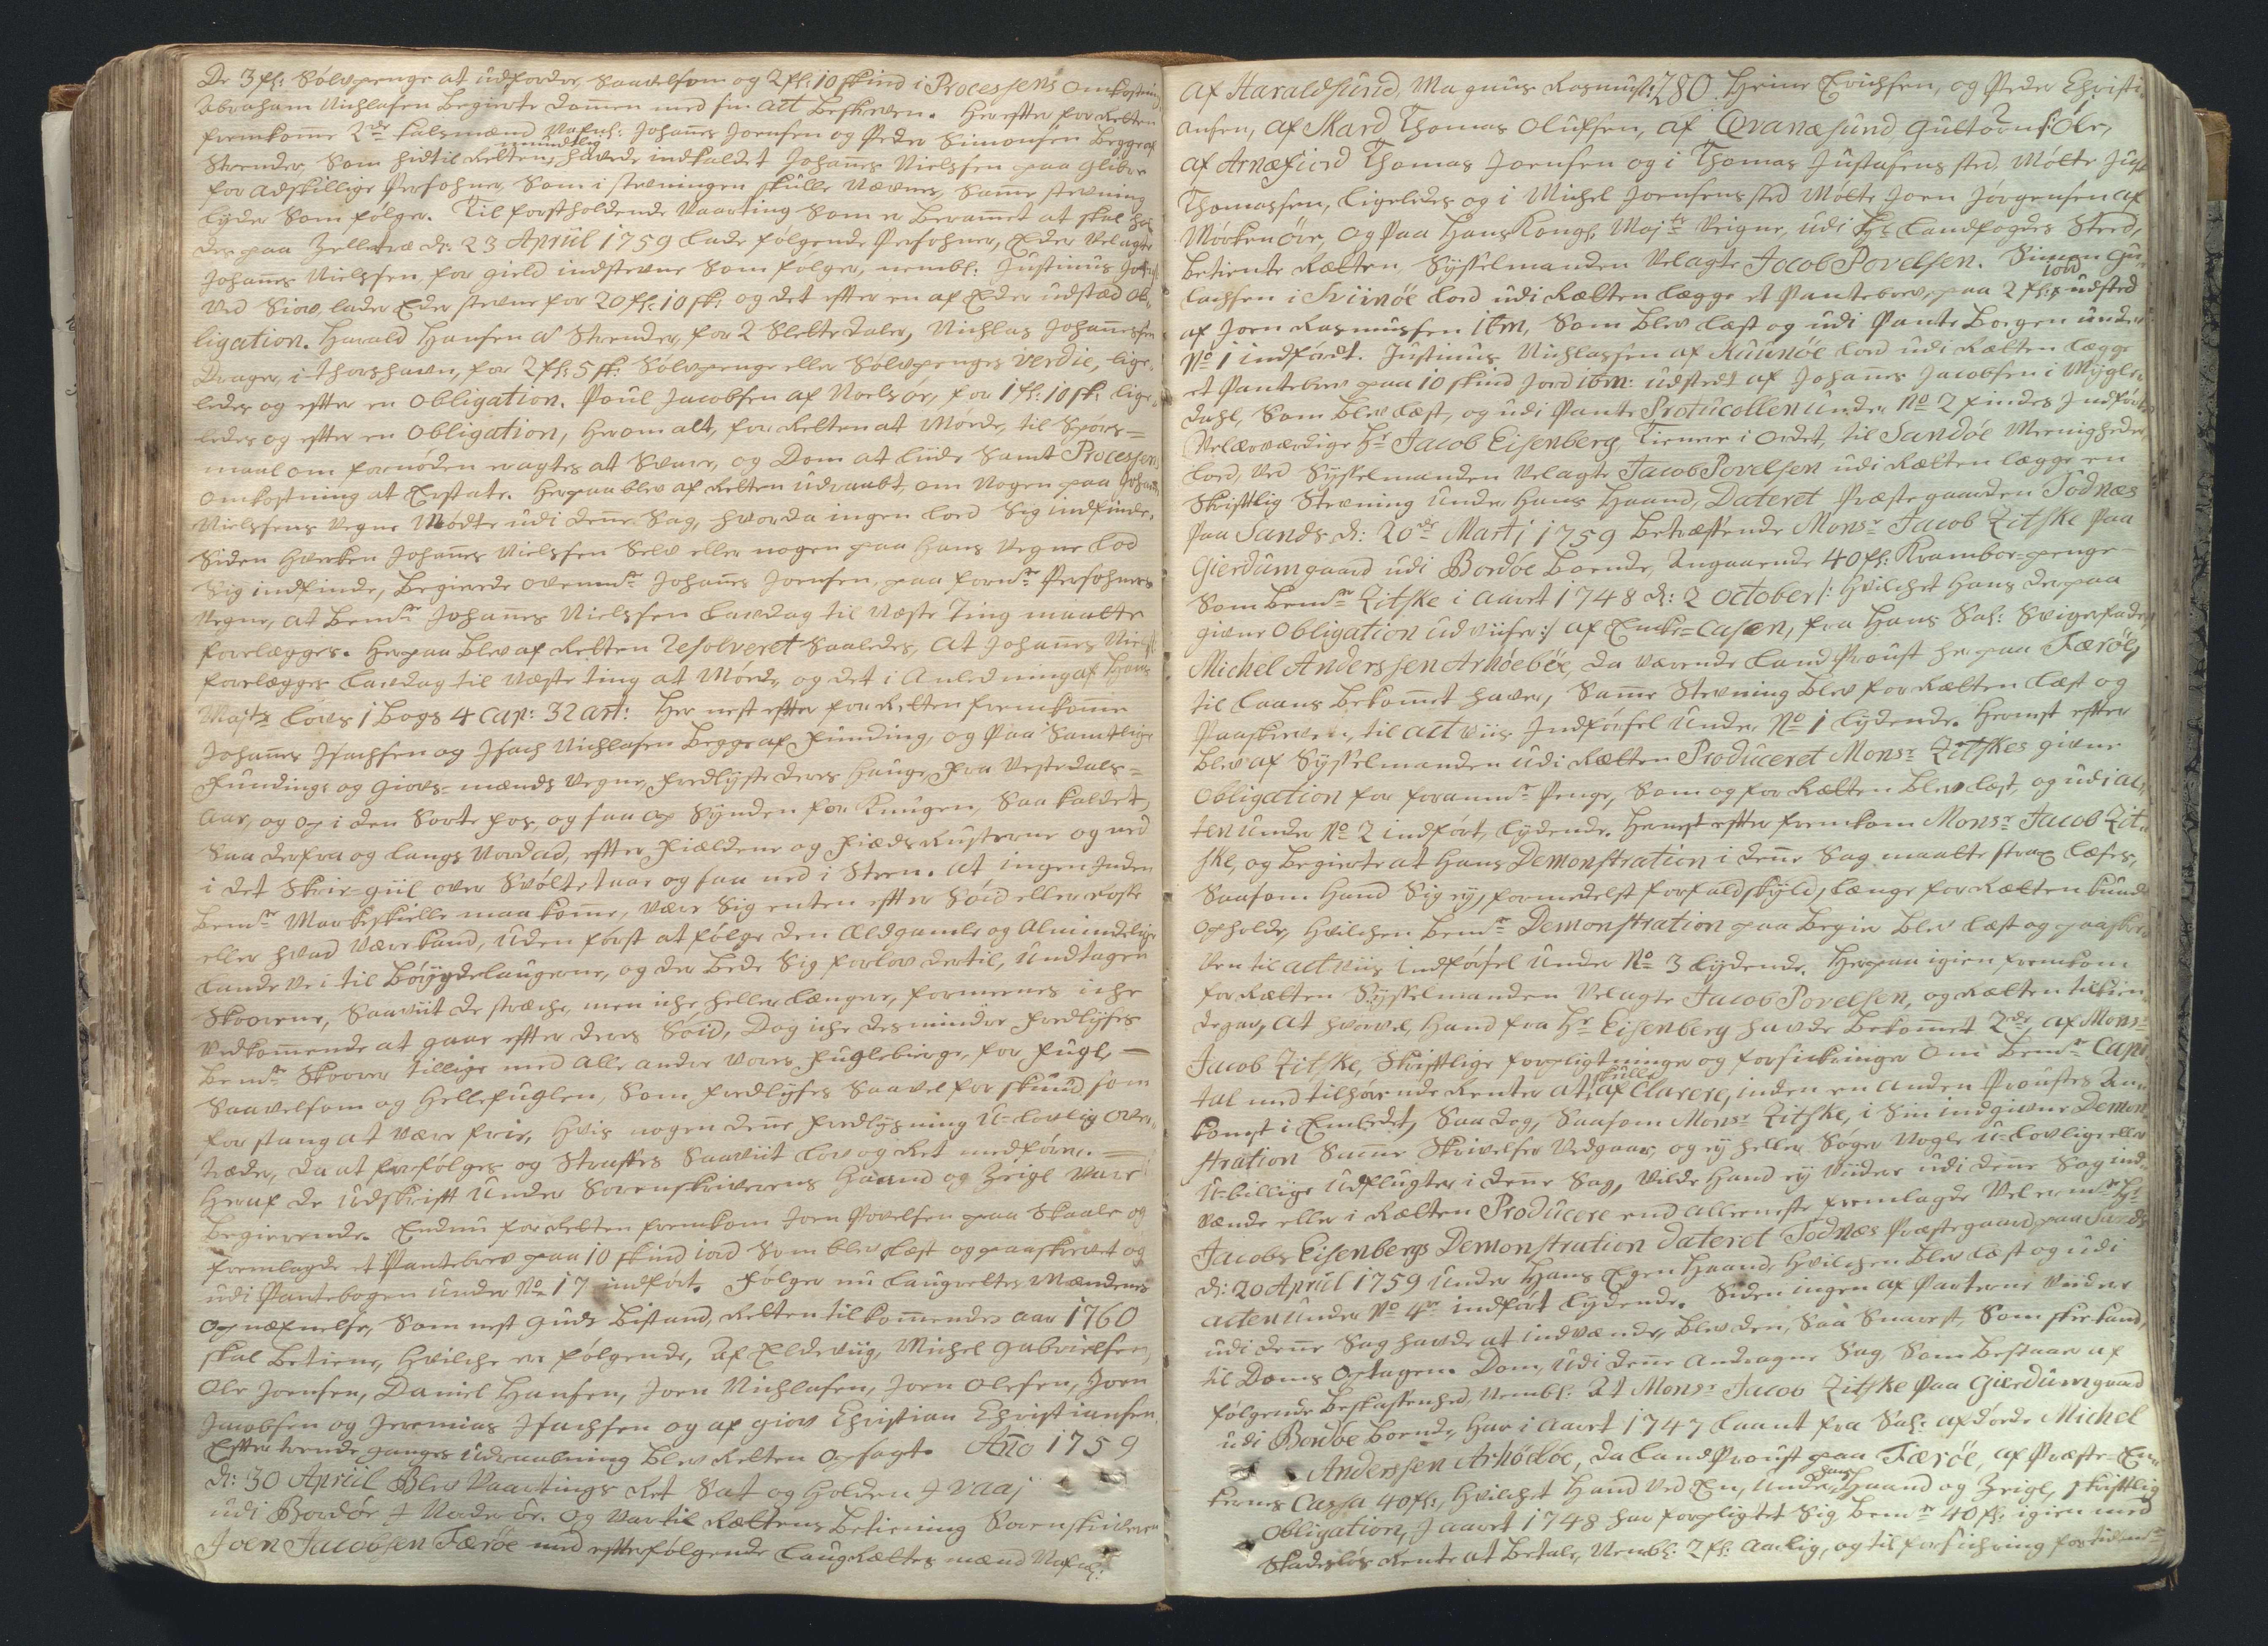 De 3 fl: Sölvpenge at udfordre, saavelsom og 2 fl: 10 skind i Processens omkostning
Abraham Nichlasen begierte dommen med sin Act beskreven. Herefter for Retten
fremkomme 2de kalsmænd Nafnl: Johannes Joensen og Peder Simonsen begge af
Strender, som hidtil Retten, mundtlig havde indkaldet Johannes Nielssen paa Glibre
for adskillige Persohner, som i stevningen skulle nævnes, samme stevning
lyder som følger. Til forstholdende Vaarting som er berammet at skal hol-
des paa Zelletræ d: 23 Apriil 1759 lade følgende Persohner, Eder Velagte
Johannes Nielssen, for gield indstevne som følger, nembl: Justinus
ved Siov, lader Eder stevne for 20 fl: 10 sk: og det efter en af Eder udstæd Ob-
ligation. Harald Hansen af Strender, for 2 Slettedaler, Nichlas Johannessen
Drager, i Thorshavn, for 2 fl: 5 sk: Sölvpenge eller Sölvpenges verdie, lige-
ledes og efter en Obligation. Poul Jacobsen af Norlsör, for 1 fl: 10 sk: lige-
ledes og efter en Obligation, herom alt, for Retten at Møede, til Spörs-
maal om fornöden eragtes at Svare, og Dom at liide samt Processens
omkostning at Erstate. Herpaa blev af Retten udraabt, om nogen paa Johannes
Nielssens vegne Mödte udi denne Sag, hvorda ingen lod Sig indfinde.
Siden hverken Johannes Nielssen Selv eller nogen paa hans vegne lod
Sig indfinde, begierede ovenmte Johannes Joensen, paa formte Persohners
vegne, at bemte Johannes Nielssen lavdag til næste Ting maatte
forelægges. Herpaa blev af Retten Resolveret saaledes, at Johannes Nielss:
forelægges lavdag til næste ting at Møede, og det i Anledning af Hans
Majts lovs 1 Bogs 4 Cap: 32 art: Her nest efter for Retten fremkomme
Johannes Isachsen og Isach Nichlasen begge af Funding, og paa samtlige
Fundings og Giovs-mænds vegne, fredlyste deres Hauge, fra Vestedals-
aar, og op i den Sorte fos, og saa op Synden for Knugen, saa kaldet,
saa derfra og langs Nordad, efter Fieldene og Fieds Rusterne og ned
i det Skrir-giil over Svöltetaar og saa ned i Steen. At ingen Inden
bemte Markeskielle maa komme, være Sig enten efter Söid eller
eller hvad være kand, uden först at følge den Eldgamle og Almindelige
lande vei til Böygdelaugerne, og der bede Sig forlov dertil, undtagen
Skoerne, saaviit de stræche, men iche heller længere, formeenes iche
vedkommende at gaae efter deres Söid, dog iche desmindre fredlyses
bemte Skoerer tillige med alle andre vores Fuglebierge, for Fugl,
saavelsom og Hellefuglen, som fredlyses saavel for skuud, som
for stang at være frie, hvis nogen denne fredlysning u-lovlig over-
træder, da at forfölges og Straffes saaviit lov og Ret medfører.
Heraf de udskrift under Sorenskriverens Haand og Zeigl vare
begierende. Endnu for Retten fremkom Joen Povelsen paa Skaale og
fremlagde et Pantebrev paa 10 skind iord som blev læst og paaskrevet og
udi Pantebogen under No 17 indfört. Følger nu Laugrettes Mændenes
opnæfnelse, som nest Guds bistand, Retten tilkommendes aar 1760
skal betiene, hvilche er følgende, Af Eldeviig, Michel Gabrielsen,
Ole Joensen, Daniel Hansen, Joen Nichlasen, Joen Olesen, Joen
Jacobsen og Jeremias Isachsen og af Giov Christian Christiansen.
Efter trende ganges udraabning blev Retten opsagt. Ano 1759
d: 30 Apriil blev Vaartings Ret Sat og Holden i Vaaj
udi Bordöe i Norder öe. Og var til Rettens betiening Sorenskriveren
Joen Jacobsen Færöe med efterfølgende LaugRettes mænd Nafnl:
280
af Haraldsund, Magnus Rasmuss: Heine Erichsen, og Peder Christi-
ansen, af Skard Thomas Olufsen, af Qvanæsund Guttorm Ole,
af Arnæfiord Thomas Joensen og i Thomas Justasens sted, Mötte Just
Thomassen, ligeledes og i Michel Joensens sted Mötte Joen Jörgensen af
Mörkenöre, og paa Hans Kongl: Majts Veigne, udi Hr Landfogdes Sted,
betiente Retten, Sysselmanden Velagte Jacob Povelsen. Simon Gu-
lachsen i Sviinöe lod udi Retten lægge et Pantebrev, paa 2 fl: iord udsted
af Joen Rasmussen ibm, som blev læst og udi Pante Bogen under
No 1 indfördt. Justinus Nichlassen af Kunöe lod udi Retten lægge
et Pantebrev paa 10 skind Jord ibm: udsted af Johannes Jacobsen i Mygle-
dahl, som blev læst, og udi Pante Protucollen under No 2 findes Indfört.
Velærværdige Hr Jacob Eisenberg, Tienere i Ordet, til Sandöe Meenigheder,
lod, ved Sysselmanden Velagte Jacob Povelsen udi Retten lægge en
Skriftlig Stevning under hans Haand, Dateret Præstegaarden Todnæs
paa Sands d: 20de Martj 1759 betræffende Monsr Jacob Zitske paa
Gierdumgaard udi Bordöe boende, angaaende 40 fl: Krambor-penge
som bemte Zitske i Aaret 1748 d: 2 October /: hvilchet hans derpaa
givne Obligation udviiser :/ af Encke-Casen, fra hans Sal: Svigerfader
Michel Anderssen Arhöeböe, da værende Land Proust her paa Færöe,
til laans bekommet haver, samme Stevning blev for Retten læst og
paaskreven, til act viis Indførsel under No 1 lydende. Hernest efter
blev af Sysselmanden udi Retten Produceret Monsr Zitskes givne
Obligation for forommte Penge, som og for Retten blev læst, og udi ac-
ten under No 2 indfört, lydende. Hernest efter fremkom Monsr Jacob Zit-
ske, og begierte at hans Demonstration i denne Sag maatte strax læses,
saasom hand Sig ey, formedelst forfald skyld, længe for Retten kunde
opholde, hvilchen bemte Demonstration paa begier blev læst og paaskre-
ven til act viis Indførsel under No 3 lydende. Herpaa igien fremkom
for Retten Sysselmanden Velagte Jacob Povelsen, og Retten tilkien-
degav, at hvorvel hand fra Hr Eisenberg havde bekomet 2de, af Monsr
Jacob Zitske, Skriftlige forpligtninger og forsickringer om bemte Capi-
tal med tilhørende Renter at skulle af Clarere, inden en anden Proustes An-
komst i Embedet, saa dog, saasom Monsr Zitske, i sin indgivne Demon-
stration samme Skrivelser vedgaar, og ey heller Söger nogle u-lovlige eller
u-billige udflugter i denne Sag, vilde hand ey viidere udi denne Sag ind-
vænde eller i Retten Producere end allerneste fremlagde Velermte Hr
Jacobs Eisenbergs Demonstration Dateret Todnæs Præstegaard paa Sands
d: 20 Apriil 1759 under hans Egen Haand, hvilchen blev læst og udi
acten under No 4re indfört lydende. Siden ingen af Parterne viidere
udi denne Sag havde at indvænde, blev den, saa snarest, som skee kand,
til Doms optagen. Dom, udi denne andragne Sag, som bestaar af
følgende beskaffenhed, Nembl: At Monsr Jacob Zitske paa Gierdumgaard
udi Bordöe boende, har i Aaret 1747 laant fra Sal: afdöede Michel
Anderssen Arhöeböe, da Land Proust paa Færöe, af Præste-En-
kernes Cassa 40 fl:, hvilchet hand ved En, under hans Haand og Zeigl, skriftlig
Obligation, i aaret 1748 har forpligtet Sig bemte 40 fl: igien med
Skadeslös Rente at betale, Nembl: 2 fl: aarlig, og til forsichring for tidenmte